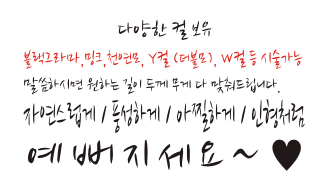 다양한 컬 보유
블랙그라마, 밍크, 천연모, Y컬 (더블모), W컬 등 시술가능
말씀하시면 원하는 길이 두께 무게 다 맞춰드립니다.
자연스럽게 / 풍성하게 / 아찔하게 / 인형처럼
예뻐지세요~ ♥